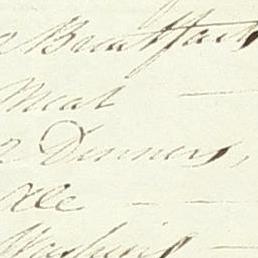 Breakfast
Meat
Dinners,
Ale
Washing